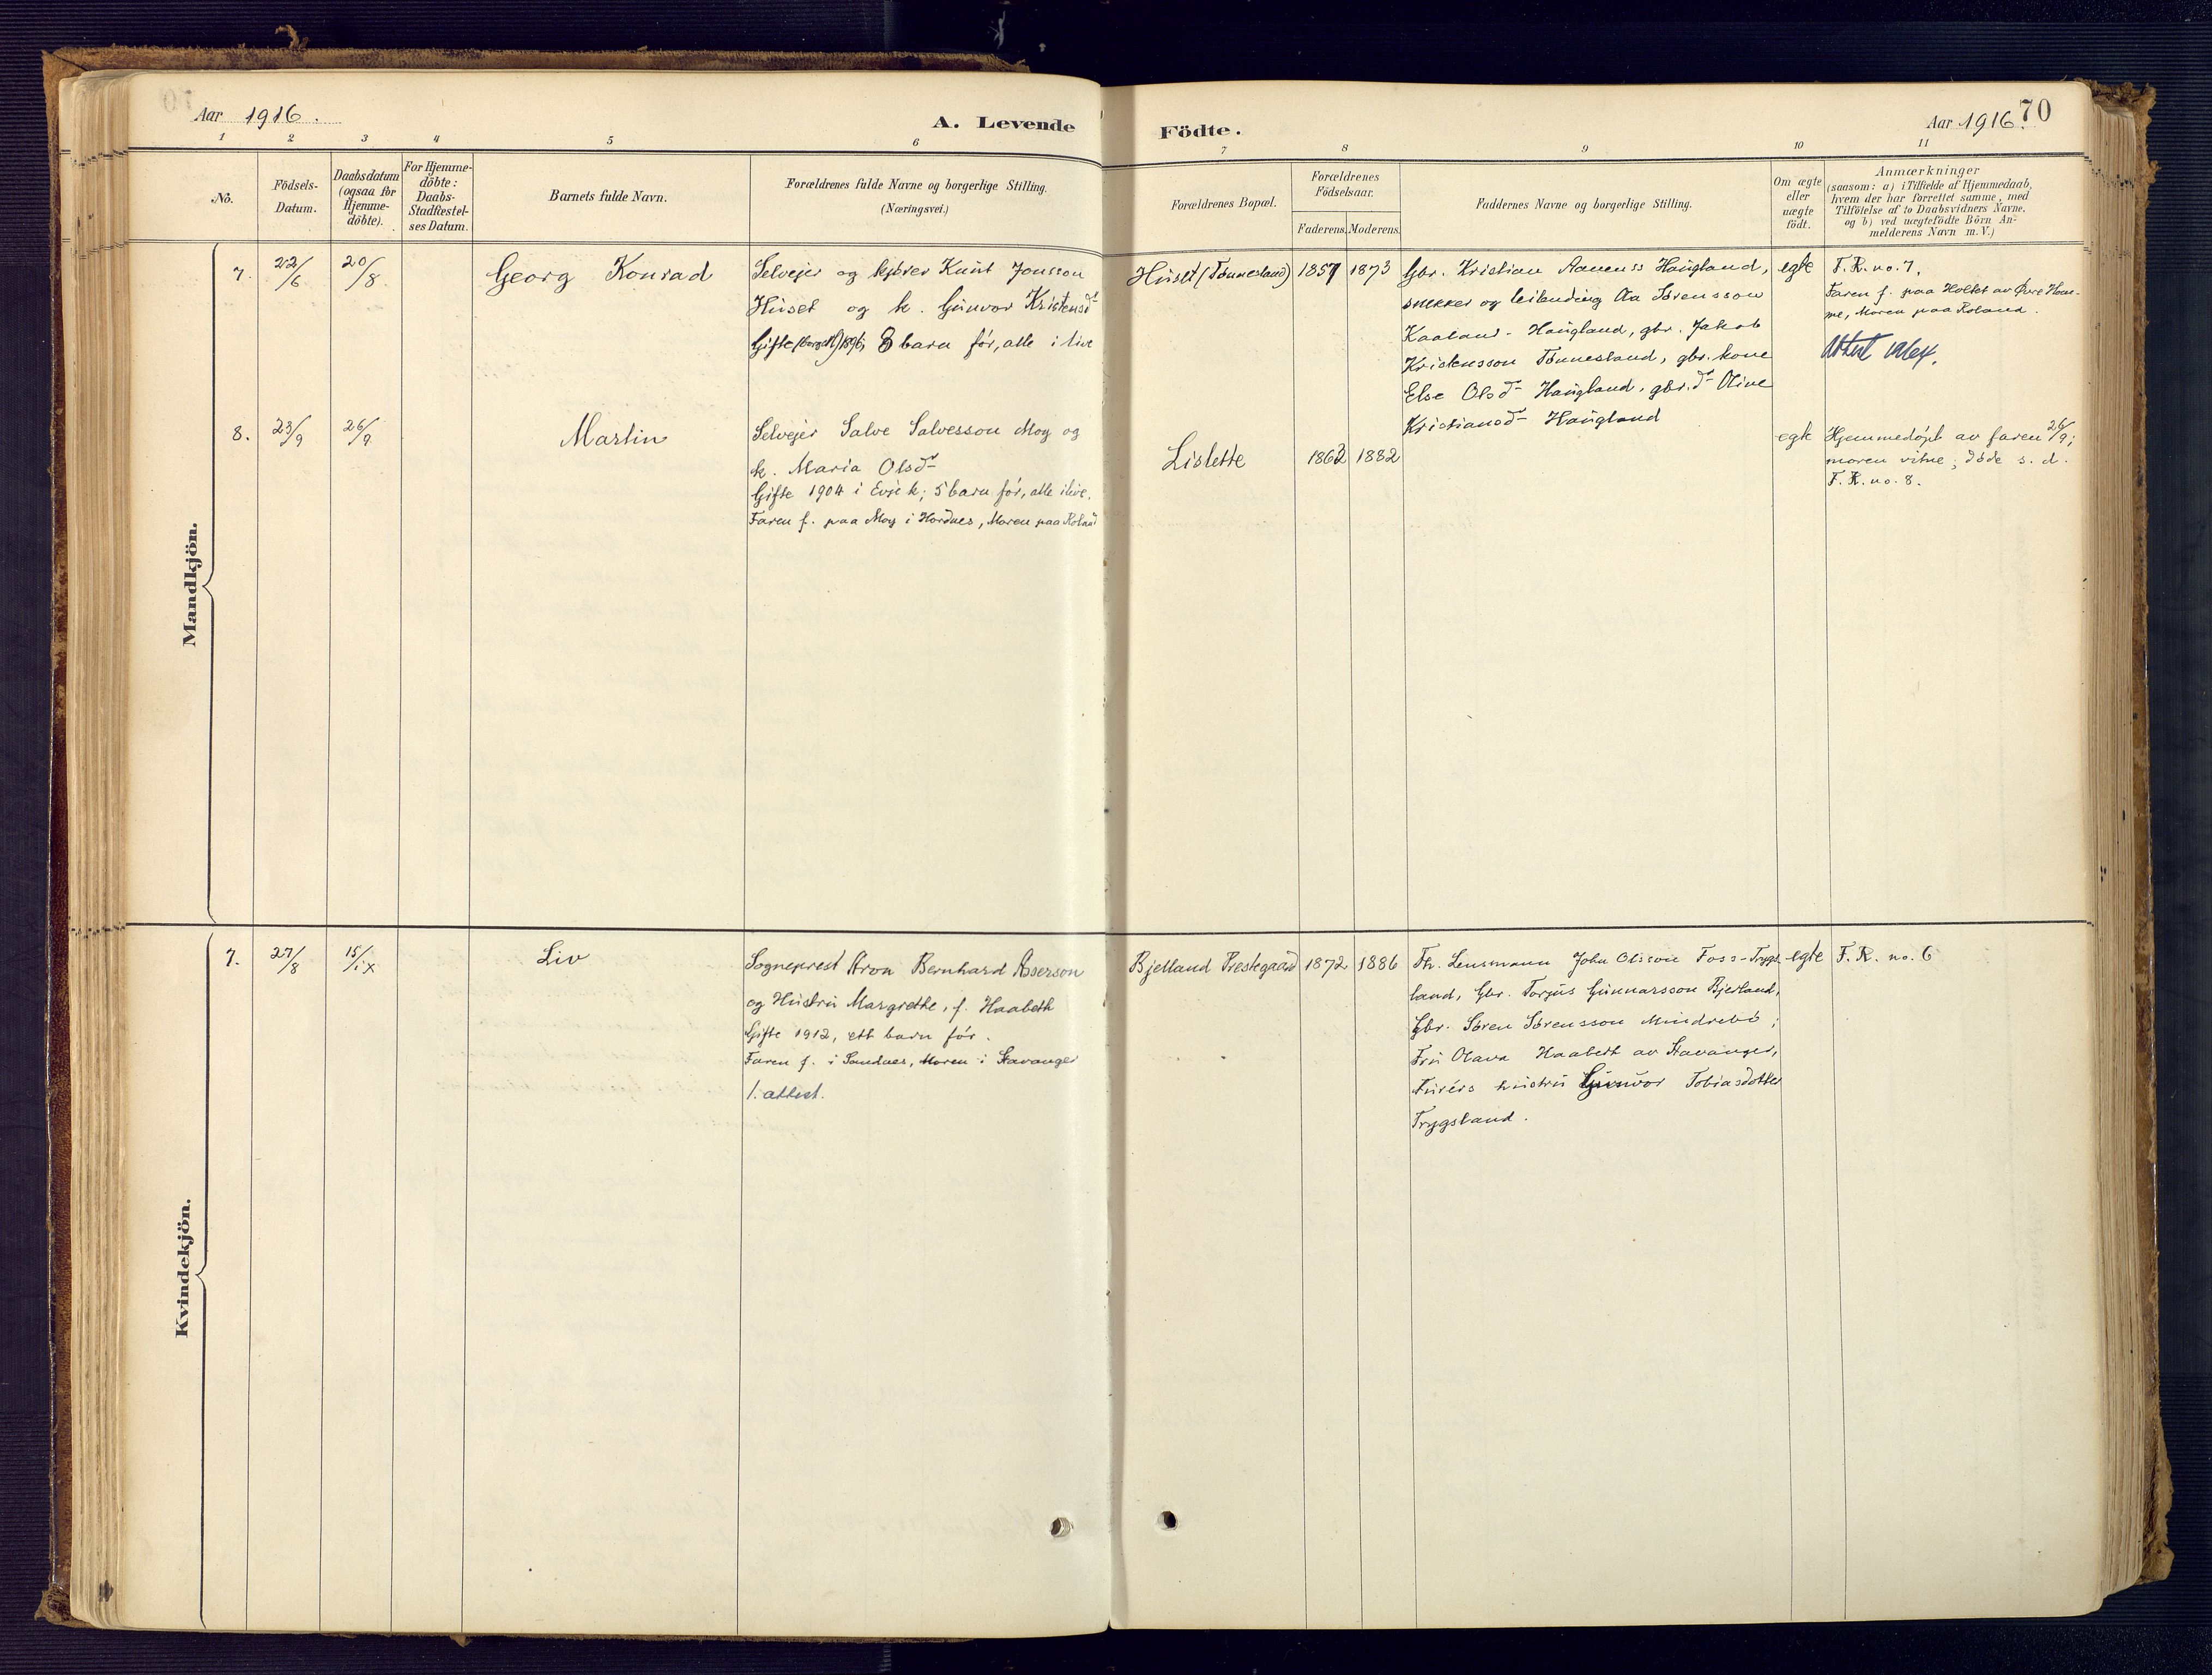 70
Aar 1916.
A. Levende Födte.
Aar 1916.
1 2 3 4 5 6 7 8 9 10 11
No.
Födsels-
Datum.
Daabsdatum
(ogsaa for
Hjemme-
döbte).
For Hjemme-
döbte:
Daabs-
Stadfæstel-
ses Datum.
Barnets fulde Navn.
Forældrenes fulde Navne og borgerlige Stilling.
(Næringsvei.)
Forældrenes Bopæl.
Forældrenes
Födselsaar.
Faderens. Moderens.
Faddernes Navne og borgerlige Stilling.
Om ægte
eller
uægte
födt.
Anmærkninger
(saasom: a) i Tilfælde af Hjemmedaab,
hvem der har forrettet samme, med
Tilföielse af to Daabsvidners Navne.
og b) ved uægtefödte Börn An-
melderens Navn m. V.)
Mandkjön.
7. 22/6 20/8 Georg Konrad
Selvejer og kjører Knut Jonsson
Huset og k. Gunvor Kristensd
Gifte 1896; 8 barn før, alle i live
Huset (Tønnesland) 1857 1873
Gbr. Kristian Aanenss Haugland,
snekker og leilending Aa Sørensson
Kaaland - Haugland, gbr. Jakob
Kristensson Tønnesland, gbr. kone
Else Olsd Haugland, gbr. d Oline
Kristiansd Haugland
egte
F. R. no. 7.
Faren f. paa Holtet av Øvre Hom-
me, Moren paa Roland.
Attest
8. 23/9 26/9 Martin
Selvejer Salve Salvesson Moy og
k. Maria Olsd
Gifte 1904 i Evje k; 5 barn før, alle i live.
Faren f. paa Moy i Hordnes, Moren paa Roland
Lislette 1862 1882
egte
Hjemmedøpt av faren 26/9;
moren vitne; døde s. d.
F. R. no. 8.
Kvindekjön.
7. 27/8 15/ix Liv
Sogneprest Aron Bernhard Asserson
og Hustru Margrethe, f. Haabeth
Gifte 1912, ett barn før.
Faren f. i Sandnes, Moren i Stavanger
1. attest.
Bjelland Prestegaard 1872 1886
Fh. Lensmann John Olsson Foss-Trygs
land, Gbr. Torjus Gunnarsson Bjelland,
Gbr. Søren Sørensson Mindrebø;
Fru Olava Haabeth av Stavanger,
Furérs hustru Gunvor Tobiasdotter
Trygsland.
egte
F. R. no. 6